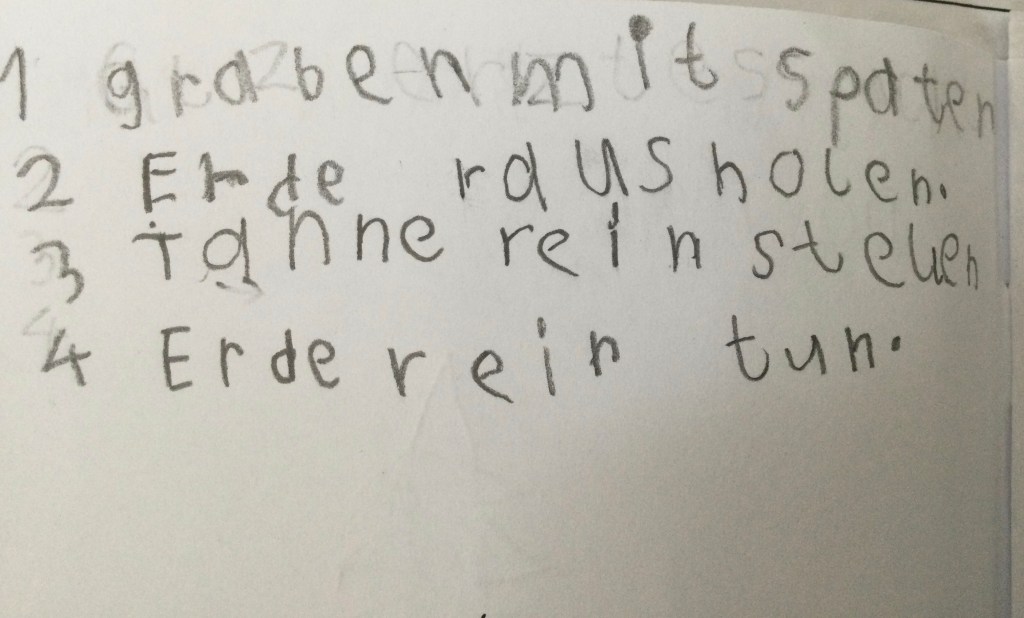 1 graben mit spaten
2 Erde raus holen.
3 Tanne rein stellen
4 Erde rein tun.